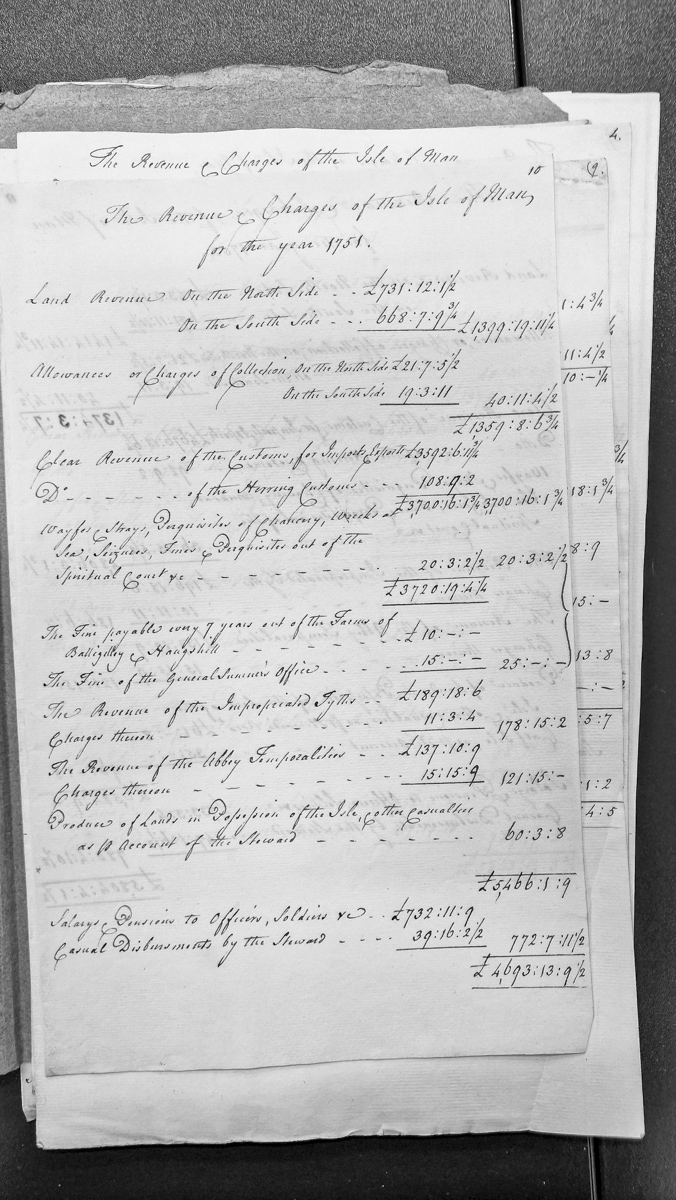 4.
The Revenue & Charges of the Isle of Man
10
9.
The Revenue & Charges of the Isle of Man,
for the year 1751.
Land Revenue On the North Side - - £731:12:1½
On the South Side - - - 668:7:9¾ £1,399:19:11¼
Allowances or Charges of Collection, On the North Side £21:7:5½
On the South Side 19:3:11 40:11:4½
£1359:8:6¾
Clear Revenue of the Customs, for Imports & Exports £3592:6:11¾
Do - - - - - - of the Herring Customs - - - 108:9:2
£3700:16:1¾ 3,700:16:1¾
Wayfes & Strays, Perquisites of Chancery, Wrecks at
Sea, Seizures, Fines & Perquisites out of the
Spiritual Court &c - - - - - - - - - 20:3:2½ 20:3:2½
£3720:19:4¼
The Fine payable every 7 years out of the Farms of
Balligilley & Haugshill - - - - - - - £10:-:-
The Fine of the General Sumner's Office - - - - 15:-:- 25:-:-
The Revenue of the Impropriated Tyths - - £189:18:6
Charges thereon - - - - - - - - 11:3:4 178:15:2
The Revenue of the Abbey Temporalities - - £137:10:9
Charges thereon - - - - - - - - 15:15:9 121:15:-
Produce of Lands in Possession of the Isle, & other Casualties
as p Account of the Steward - - - - - - - 60:3:8
£5,466:1:9
Salarys & Pensions to Officers, Soldiers &c - - £732:11:9
Casual Disbursments by the Steward - - - - 39:16:2½ 772:7:11½
£4,693:13:9½
1:4¾
11:4½
10:-¼
18:1¾
8:9
15:-
13:8
-:-
:5:7
1:2
4:5
£1374:3:7